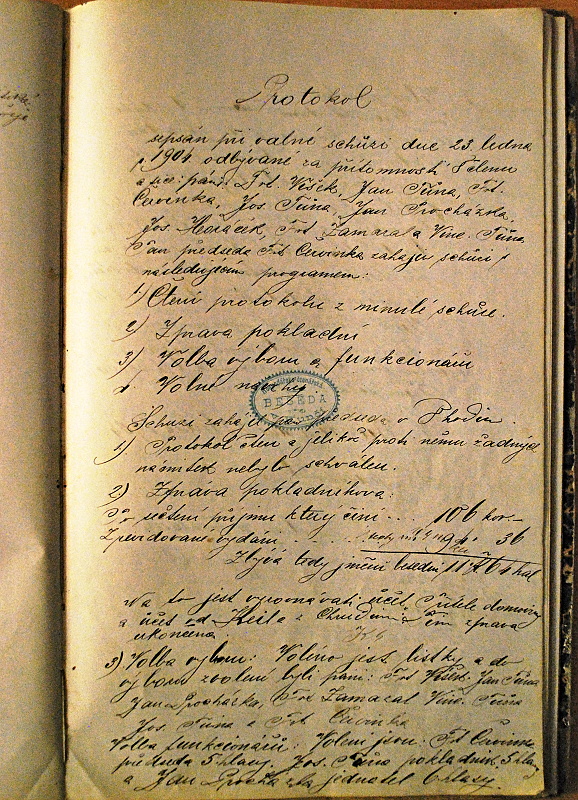 Protokol
sepsán při valné schůzi dne 23. ledna
r. 1904 odbývané za přítomnosti členu
a sice: pánů: Frt. Víšek, Jan Tůna, Frt.
Červinka, Jos. Tůna, Jan Procházka,
Jos. Heřáček, Frt. Zamazal a Vinc. Tůna
Pan předseda Frt Červinka zahájil schůzi
následujícím programem:
1) Čtení protokolu z minulé schůze.
2) Zpráva pokladní
3) Volba výboru a funkcionářů
4. Volné návrhy
BESEDA
Schůzi zahájil předseda v hodin.
1) Protokol čten a jelikož proti nemu žadných
námitek nebylo schválen.
2) Zpráva pokladníkova:
Po sečtení příjmu který činí . . . 106 kor.–
Zbývá tedy jmění besední
Na to jest vyrovnávati účet Přítele domoviny
a účet od z Chrudimi Tím zpráva
ukončena
3) Volba výboru: Voleno jest lístky a do
výboru zvoleni byli páni: Frt Víšek, Jan Tůna
Jan Procházka, Frt Zamazal Vinc. Tůna
Jos. Tůna a Frt. Červinka
Volba funkcionářů: Voleni jsou: Frt Červinka
předseda 5 hlasy, Jos. Tůna pokladník 5 hlasy
a Jan Procházka jednatel 6 hlasy.